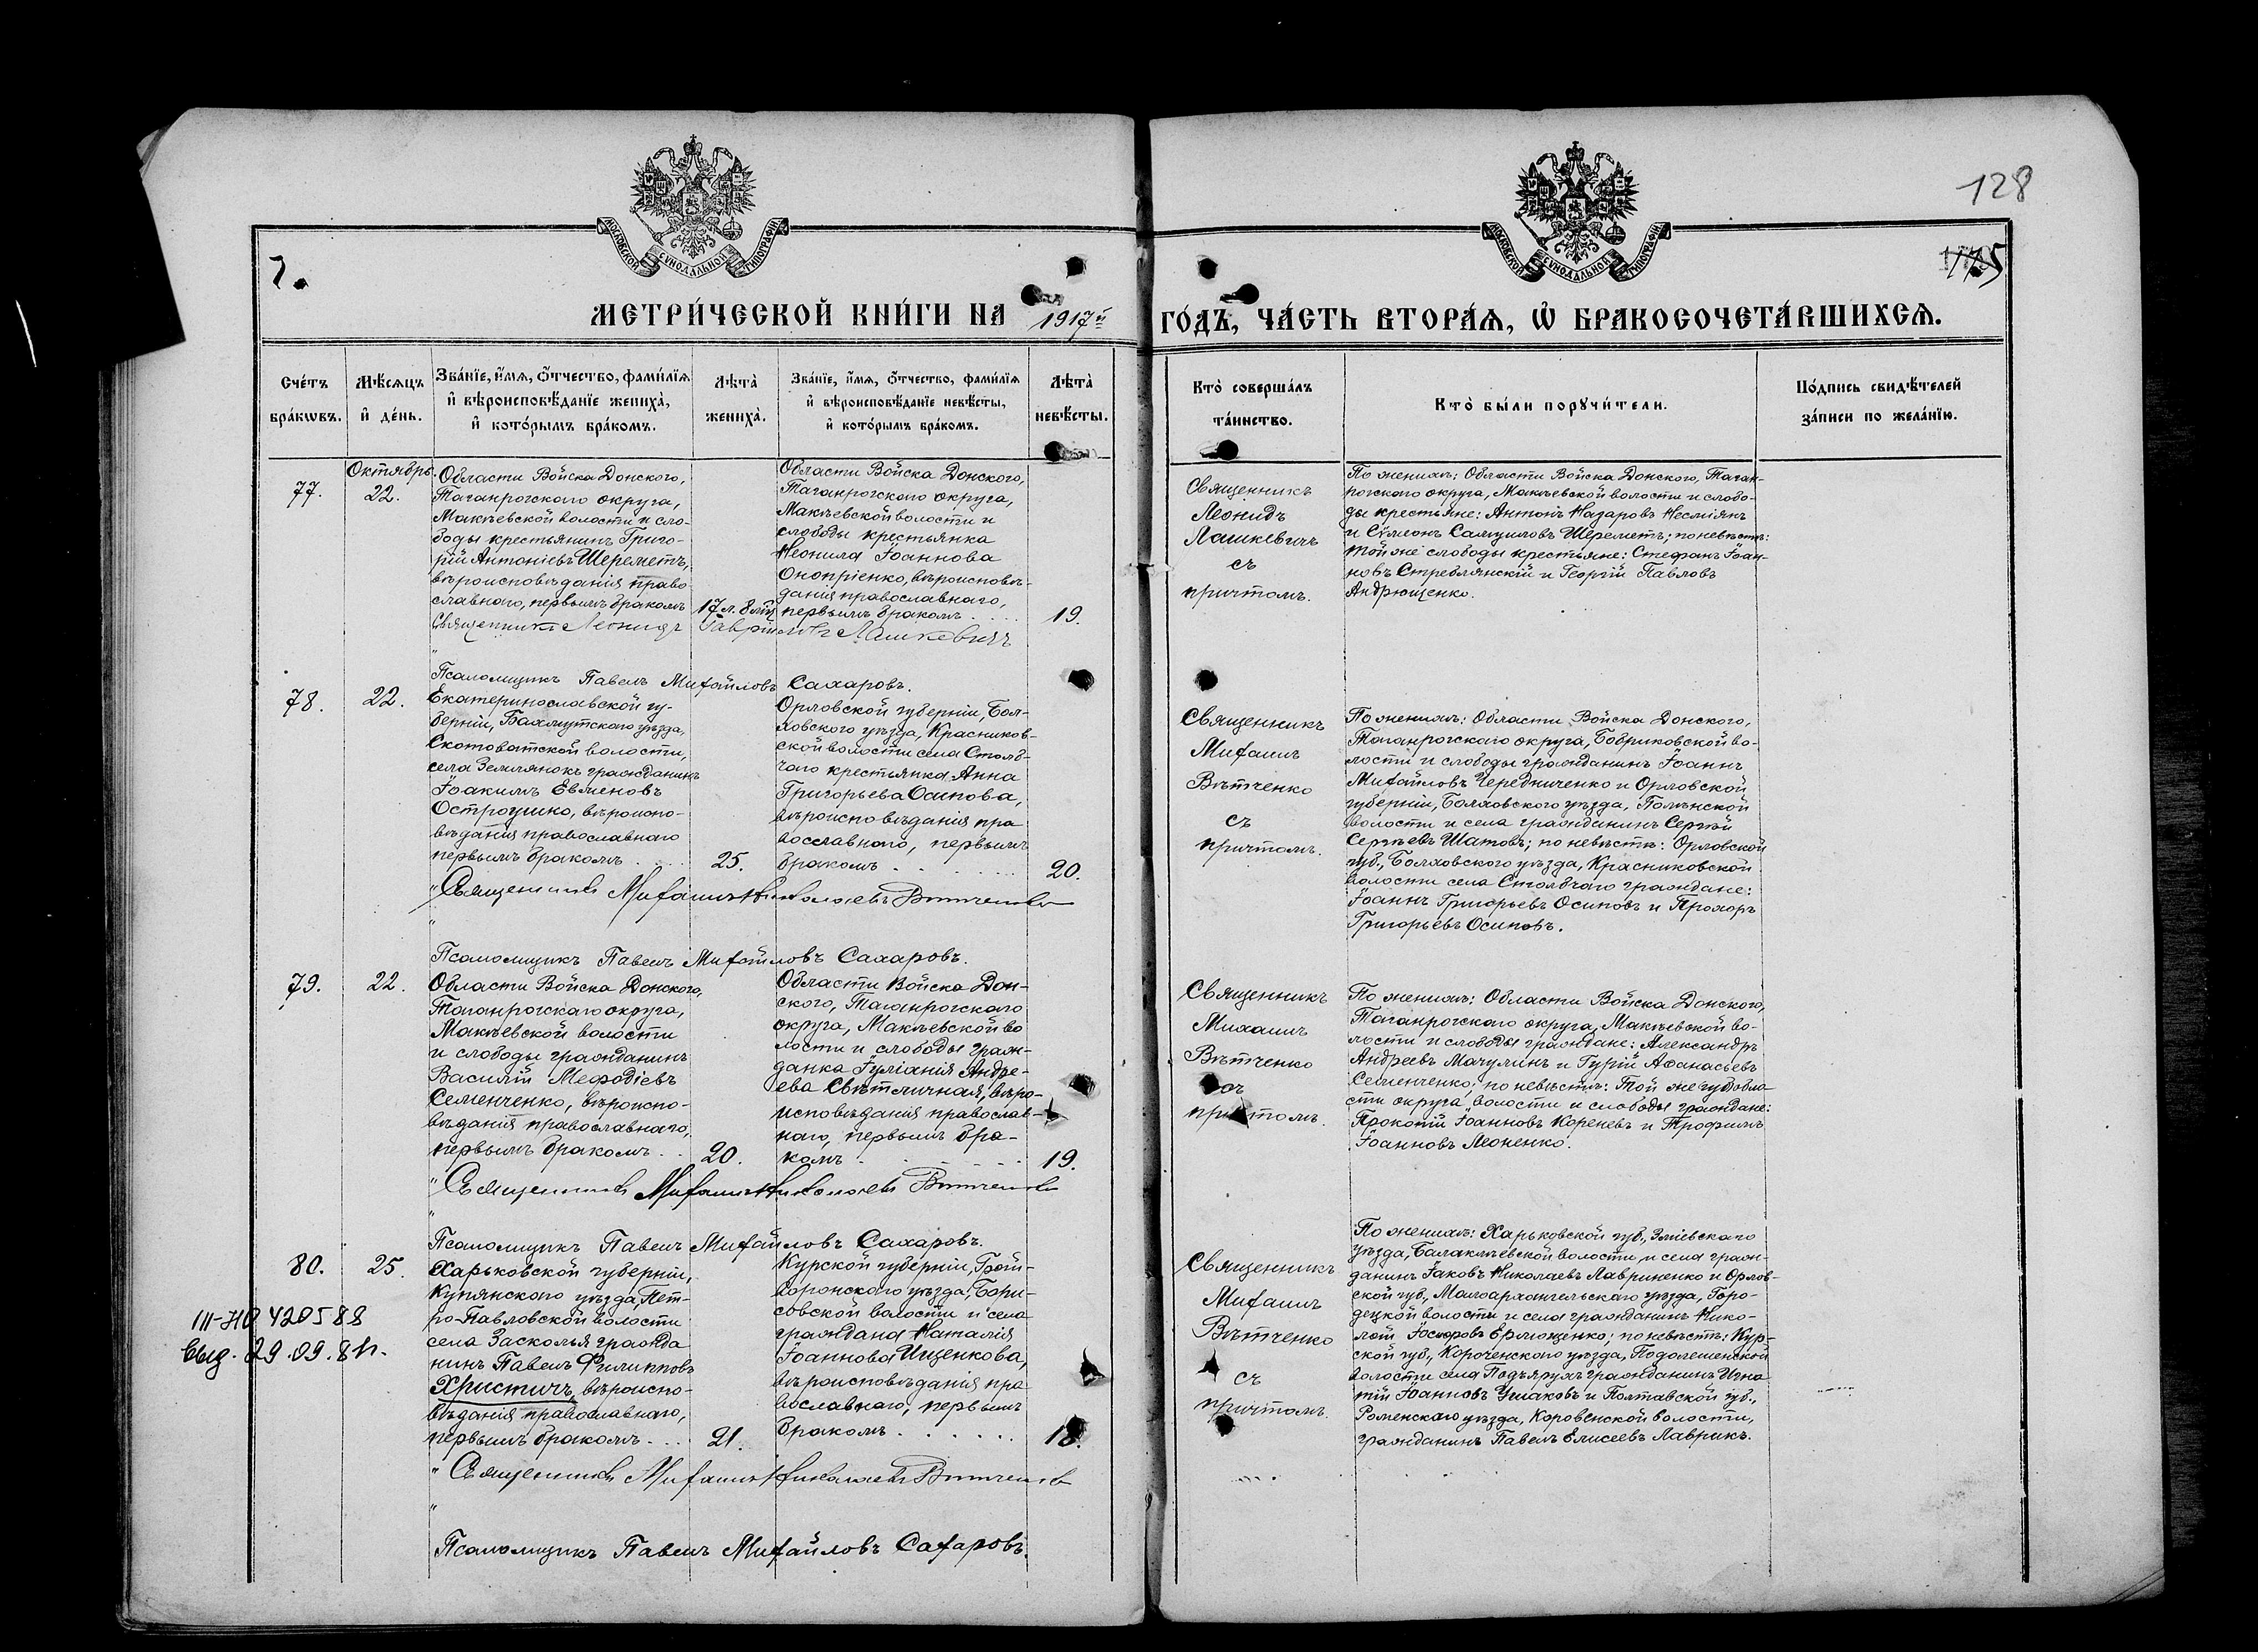 128
МОСКОВСКОЙ СѴНОДАЛЬНОЙ ТИПОГРАФІИ
МОСКОВСКОЙ СѴНОДАЛЬНОЙ ТИПОГРАФІИ
7.
175
МЕТРИ́ЧЕСКОЙ КНИ́ГИ НА 1917й ГО́ДЪ, ЧА́СТЬ ВТОРА́Ѧ, Ѡ҆ БРАКОСОЧЕТА́ВШИХСѦ.
Сче́тъ бра́кѡвъ.
Мѣ́сѧцъ и҆ де́нь.
Зва́нїе, и҆́мѧ, ѻ҆́тчество, фами́лїѧ
и҆ вѣроисповѣ́данїе жениха̀,
и҆ кото́рымъ бра́комъ.
Лѣта̀ жениха̀.
Зва́нїе, и҆́мѧ, ѻ҆́тчество, фами́лїѧ
и҆ вѣроисповѣ́данїе невѣ́сты,
и҆ кото́рымъ бра́комъ.
Лѣта̀ невѣ́сты.
Кто̀ соверша́лъ та́инство.
Кто̀ бы́ли порꙋчи́тели.
По́дпись свидѣ́телей
за́писи по жела́нїю.
77.
Октябрь.
22.
Области Войска Донского,
Таганрогскаго округа,
Макѣевской волости и сло-
боды крестьянинъ Григо-
рій Антоніевъ Шереметъ,
вѣроисповѣданія право
славнаго, первымъ бракомъ
17 л. 8 мц
Области Войска Донского,
Таганрогскаго округа,
Макѣевской волости и
слободы крестьянка
Неонила Іоаннова
Оноприенко, вѣроисповѣ-
данія православнаго,
первымъ бракомъ . . . .
19.
Священникъ
Леонидъ
Лашкевичъ
съ
причтомъ.
По женихѣ; Области Войска Донского, Таган-
рогскаго округа, Макѣевской волости и слобо-
ды крестьяне: Антонъ Назаровъ Несміянъ
и Сѵмеонъ Самуиловъ Шереметъ; по невѣстѣ:
той же слободы крестьяне: Стефанъ Іоан-
новъ Стреблянскій и Георгій Павловъ
Андрющенко.
Священникъ Леонидъ Гавріиловъ Лашкевичъ
Псаломщикъ Павелъ Михайловъ Сахаровъ.
78.
22.
Екатеринославской гу-
берніи, Бахмутскаго уѣзда,
Скотоватской волости,
села Землянокъ гражданинъ
Іоакимъ Евменовъ
Остроушко, вѣроиспо-
вѣданія православнаго
первымъ бракомъ . . . .
25.
Орловской губерніи, Бол-
ховского уѣзда, Красников-
ской волости села Столб-
чаго крестьянка Анна
Григорьева Осипова,
вѣроисповѣданія пра
вославнаго, первымъ
бракомъ . . . . . . .
20.
Священникъ
Михаилъ
Вѣтченко
съ
причтомъ.
По женихѣ: Области Войска Донского,
Таганрогскаго округа, Бобриковской во-
лости и слободы гражданинъ Іоаннъ
Михайловъ Чередниченко и Орловской
губерніи, Болховского уѣзда,
волости и села гражданинъ Сергѣй
Сергѣевъ Шатовъ; по невѣстѣ: Орловской
губ., Болховского уѣзда, Красниковской
волости села Столбчаго граждане:
Іоаннъ Григорьевъ Осиповъ и Прохоръ
Григорьевъ Осиповъ.
Священникъ Михаилъ Николаевъ Вѣтченко
Псаломщикъ Павелъ Михайловъ Сахаровъ.
79.
22.
Области Войска Донского,
Таганрогскаго округа,
Макѣевской волости
и слободы гражданинъ
Василій Меѳодіевъ
Семенченко, вѣроиспо-
вѣданія православнаго,
первымъ бракомъ . .
20.
Области Войска Дон-
ского, Таганрогскаго
округа, Макѣевской во
лости и слободы граж-
данка Іуліанія Андре-
ева Свѣтличная, вѣро-
исповѣданія православ-
наго, первымъ бра-
комъ . . . . . . . .
19.
Священникъ
Михаилъ
Вѣтченко
съ
причтомъ.
По женихѣ: Области Войска Донского,
Таганрогскаго округа, Макѣевской во-
лости и слободы граждане: Александръ
Андреевъ Мачулинъ и Гурій Аѳанасьевъ
Семенченко; по невѣстѣ: Той же обла
сти округа волости и слободы граждане:
Прокопій Іоанновъ Кореневъ и Трофимъ
Іоанновъ Леоненко.
Священникъ Михаилъ Николаевъ Вѣтченко
Псаломщикъ Павелъ Михайловъ Сахаровъ.
80.
25.
III-НО 420588
Выд. 29.09.84.
Харьковской губерніи,
Купянского уѣзда, Пет-
ро-Павловской волости
села Засколья гражда
нинъ Павелъ Филипповъ
Христичъ, вѣроиспо-
вѣданія православнаго,
первымъ бракомъ . . .
21.
Курской губерніи, Грай-
воронскаго уѣзда, Бори-
совской волости и села
граждана Наталія
Іоаннова Ищенкова,
вѣроисповѣданія пра
вославнаго, первымъ
бракомъ . . . . . .
18.
Священникъ
Михаилъ
Вѣтченко
съ
причтомъ.
По женихѣ: Харьковской губ., Зміевскаго
уѣзда, Балаклѣевской волости и села граж-
данинъ Іаковъ Николаевъ Лавриненко и Орлов-
ской губ., Малоархангельскаго уѣзда, Горо-
децкой волости и села гражданинъ Нико-
лай Ермощенко; по невѣстѣ: Кур-
ской губ., Короченскаго уѣзда, Подолешенской
волости села Подъяругъ гражданинъ Игна
тій Іоанновъ Ушаковъ и Полтавской губ.,
Роменскаго уѣзда, Коровенской волости,
гражданинъ Павелъ Елисеевъ Лаврикъ.
Священникъ Михаилъ Николаевъ Вѣтченко
Псаломщикъ Павелъ Михайловъ Сахаровъ.